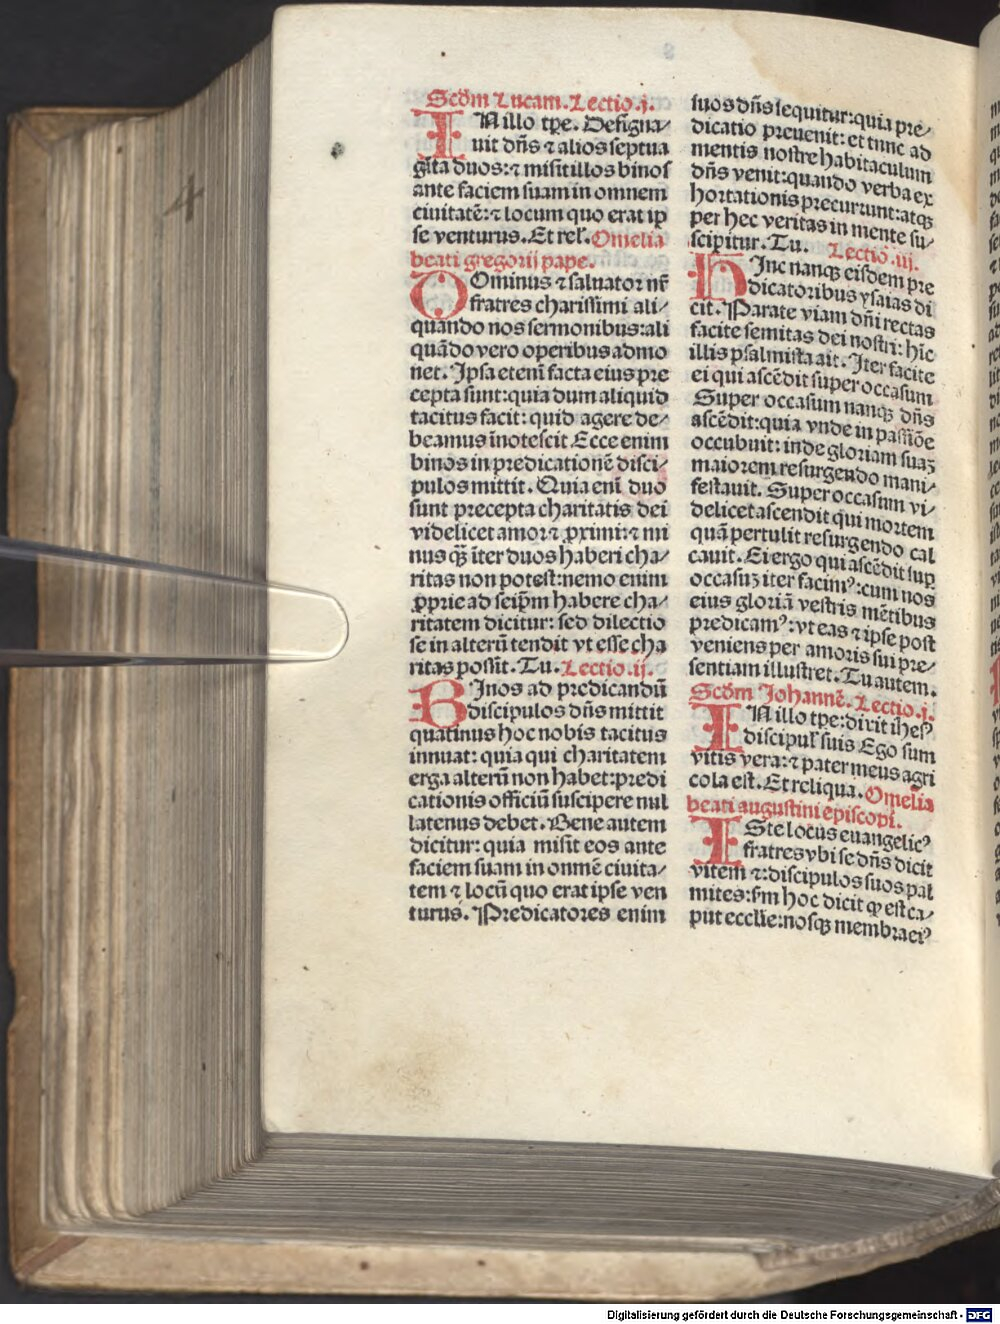 4
Scd̄m Lucam. Lectio .j.
IN illo tꝑe. Designa⸗
uit dn̄s ⁊ alios septua
gīta duos:⁊ misit illos binos
ante faciem suam in omnem
ciuitatē:⁊ locum quo erat ip̄
se venturus. Et rel̄. Omelia
beati gregorij pape.
Dominus ⁊ saluator nr̄
fratres charissimi ali⸗
quando nos sermonibus:ali
quādo vero operibus admo
net. Ipsa etenī facta eius pre
cepta sunt:quia dum aliquid
tacitus facit: quid agere de⸗
beamus īnotescit Ecce enim
binos in predicationē disci⸗
pulos mittit. Quia enī duo
sunt precepta charitatis dei
videlicet amor ⁊ ꝓximi:⁊ mi
nus qꝫ̄ īter duos haberi cha⸗
ritas non potest:nemo enim
ꝓprie ad seip̄m habere cha⸗
ritatem dicitur: sed dilectio
se in alterū tendit vt esse cha
ritas possit. Tu. Lectio .ij.
BInos ad predicandū
discipulos dn̄s mittit
quatinus hoc nobis tacitus
innuat: quia qui charitatem
erga alterū non habet:predi
cationis officiū suscipere nul
latenus debet. Bene autem
dicitur: quia misit eos ante
faciem suam in omnē ciuita⸗
tem ⁊ locū quo erat ipse ven
turus. Predicatores enim
suos dn̄s sequitur:quia pre⸗
dicatio preuenit: et tunc ad
mentis nostre habitaculum
dn̄s venit:quando verba ex
hortationis precurrunt:atqꝫ
per hec veritas in mente su⸗
scipitur. Tu. Lectio .iij.
HInc nanqꝫ eisdem pre
dicatoribus ysaias di
cit. Parate viam dn̄i rectas
facite semitas dei nostri: hīc
illis psalmista ait. Iter facite
ei qui ascēdit super occasum
Super occasum nanqꝫ dn̄s
ascēdit:quia vnde in passiōe
occubuit: inde gloriam suaꝫ
maiorem resurgendo mani⸗
festauit. Super occasum vi⸗
delicet ascendit qui mortem
quā pertulit resurgendo cal
cauit. Ei ergo qui ascēdit suꝑ
occasuꝫ iter facimꝰ:cum nos
eius gloriā vestris mētibus
predicamꝰ: vt eas ⁊ ipse post
veniens per amoris sui pre⸗
sentiam illustret. Tu autem.
Scd̄m Johannē. Lectio .j.
IN illo tꝑe: dixit ihesꝰ
discipul̄ suis Ego sum
vitis vera:⁊ pater meus agri
cola est. Et reliqua. Omelia
beati augustini episcopi.
ISte locus euangelicꝰ
fratres vbi se dn̄s dicit
vitem ⁊:discipulos suos pal
mites:sm̄ hoc dicit ꝙ est ca⸗
put ecclīe:nosqꝫ membra eiꝰ
Digitalisierung gefördert durch die Deutsche Forschungsgemeinschaft - DFG